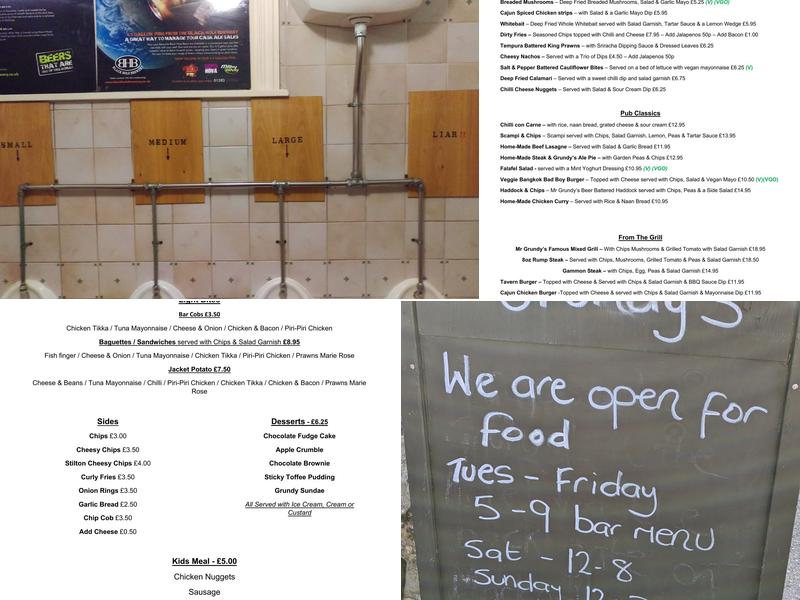 A GREAT WAY TO MANAGE YOUR CASK ALE SALES
BEERS
THAT ARE
BHB
NOVA
SMALL
MEDIUM
LARGE
LIAR!!
Breaded Mushrooms – Deep Fried Breaded Mushrooms, Salad & Garlic Mayo £5.25 (V) (VGO)
Cajun Spiced Chicken strips – with Salad & a Garlic Mayo Dip £5.95
Whitebait – Deep Fried Whole Whitebait served with Salad Garnish, Tartar Sauce & a Lemon Wedge £5.95
Dirty Fries – Seasoned Chips topped with Chilli and Cheese £7.95 – Add Jalapenos 50p – Add Bacon £1.00
Tempura Battered King Prawns – with Sriracha Dipping Sauce & Dressed Leaves £6.25
Cheesy Nachos – Served with a Trio of Dips £4.50 – Add Jalapenos 50p
Salt & Pepper Battered Cauliflower Bites – Served on a bed of lettuce with vegan mayonnaise £6.25 (V)
Deep Fried Calamari – Served with a sweet chilli dip and salad garnish £6.75
Chilli Cheese Nuggets – Served with Salad & Sour Cream Dip £6.25
Pub Classics
Chilli con Carne – with rice, naan bread, grated cheese & sour cream £12.95
Scampi & Chips – Scampi served with Chips, Salad Garnish, Lemon, Peas & Tartar Sauce £13.95
Home-Made Beef Lasagne – Served with Salad & Garlic Bread £11.95
Home-Made Steak & Grundy's Ale Pie – with Garden Peas & Chips £12.95
Falafel Salad - served with a Mint Yoghurt Dressing £10.95 (V) (VGO)
Veggie Bangkok Bad Boy Burger – Topped with Cheese served with Chips, Salad & Vegan Mayo £10.50 (V)(VGO)
Haddock & Chips – Mr Grundy's Beer Battered Haddock served with Chips, Peas & a Side Salad £14.95
Home-Made Chicken Curry – Served with Rice & Naan Bread £10.95
From The Grill
Mr Grundy's Famous Mixed Grill – With Chips Mushrooms & Grilled Tomato with Salad Garnish £18.95
8oz Rump Steak – Served with Chips, Mushrooms, Grilled Tomato & Peas & Salad Garnish £18.50
Gammon Steak – with Chips, Egg, Peas & Salad Garnish £14.95
Tavern Burger – Topped with Cheese & Served with Chips & Salad Garnish & BBQ Sauce Dip £11.95
Cajun Chicken Burger -Topped with Cheese & served with Chips & Salad Garnish & Mayonnaise Dip £11.95
Light Bites
Bar Cobs £3.50
Chicken Tikka / Tuna Mayonnaise / Cheese & Onion / Chicken & Bacon / Piri-Piri Chicken
Baguettes / Sandwiches served with Chips & Salad Garnish £8.95
Fish finger / Cheese & Onion / Tuna Mayonnaise / Chicken Tikka / Piri-Piri Chicken / Prawns Marie Rose
Jacket Potato £7.50
Cheese & Beans / Tuna Mayonnaise / Chilli / Piri-Piri Chicken / Chicken Tikka / Chicken & Bacon / Prawns Marie
Rose
Sides
Chips £3.00
Cheesy Chips £3.50
Stilton Cheesy Chips £4.00
Curly Fries £3.50
Onion Rings £3.50
Garlic Bread £2.50
Chip Cob £3.50
Add Cheese £0.50
Desserts - £6.25
Chocolate Fudge Cake
Apple Crumble
Chocolate Brownie
Sticky Toffee Pudding
Grundy Sundae
All Served with Ice Cream, Cream or
Custard
Kids Meal - £5.00
Chicken Nuggets
Sausage
Grundy's
We are open for
food
Tues - Friday
5-9 bar MENU
Sat - 12-8
Sunday 12-